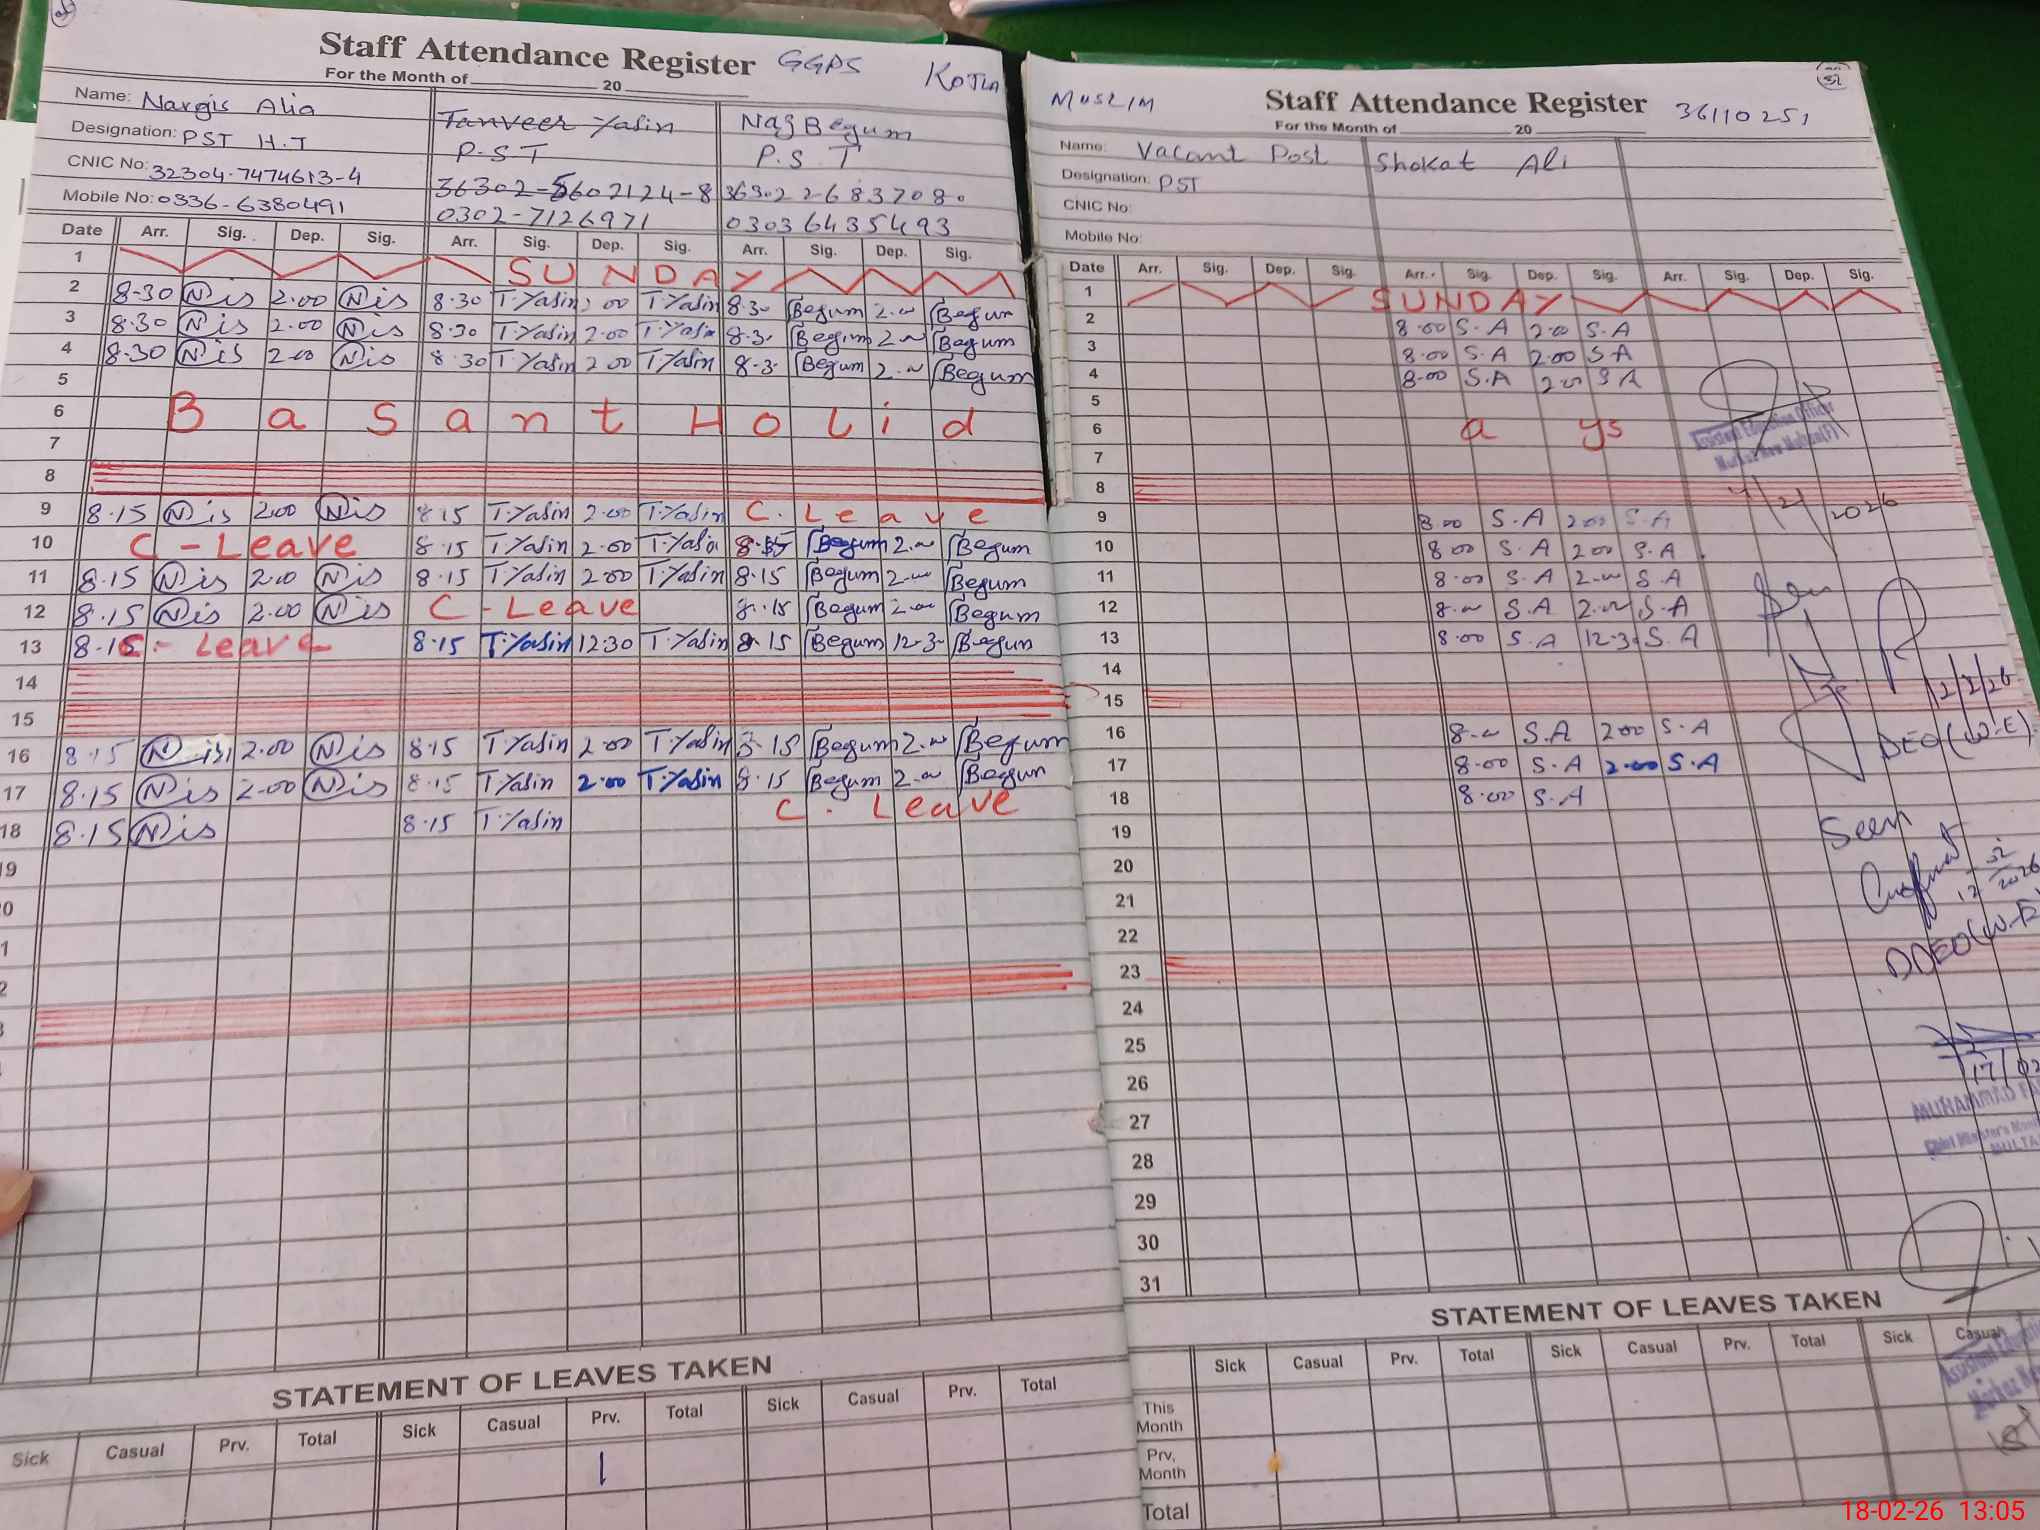 Staff Attendance Register GGPS KOTLA
For the Month of 20
Name: Nargis Alia
Designation: PST H.T
CNIC No: 32304-7474613-4
Mobile No: 0336-6380491
Tanveer Yasin
P.S.T
36302-5602124-8
0302-7126971
Naz Begum
P.S.T
36302 2683708 0
0303 6435493
Date Arr. Sig. Dep. Sig. Arr. Sig. Dep. Sig. Arr. Sig. Dep. Sig.
1 SUNDAY
2 8-30 Nis 2.00 Nis 8.30 T.Yasin 2.00 T.Yasin 8.3. Begum 2.00 Begum
3 8.30 Nis 2.00 Nis 8.30 T.Yasin 2.00 T.Yasin 8.3. Begum 2.00 Begum
4 8.30 Nis 2.00 Nis 8.30 T.Yasin 2.00 T.Yasin 8.3. Begum 2.00 Begum
5
6 Basant Holid
7
8
9 8.15 Nis 2.00 Nis 8.15 T.Yasin 2.00 T.Yasin C. Leave
10 C-Leave 8.15 T.Yasin 2.00 T.Yasin 8.15 Begum 2.00 Begum
11 8.15 Nis 2.00 Nis 8.15 T.Yasin 2.00 T.Yasin 8.15 Begum 2.00 Begum
12 8.15 Nis 2.00 Nis C-Leave 8.15 Begum 2.00 Begum
13 8.15 C- Leave 8.15 T.Yasin 12.30 T.Yasin 8.15 Begum 12-3- Begum
14
15
16 8.15 Nis 2.00 Nis 8.15 T.Yasin 2.00 T.Yasin 8.15 Begum 2.00 Begum
17 8.15 Nis 2.00 Nis 8.15 T.Yasin 2.00 T.Yasin 8.15 Begum 2.00 Begum
18 8.15 Nis 8.15 T.Yasin C. Leave
19
0
1
2
3
STATEMENT OF LEAVES TAKEN
Sick Casual Prv. Total Sick Casual Prv. Total Sick Casual Prv. Total
1
MUSLIM Staff Attendance Register 36110251
For the Month of 20
Name: Vacant Post Shokat Ali
Designation: PST
CNIC No:
Mobile No:
Date Arr. Sig. Dep. Sig. Arr. Sig. Dep. Sig. Arr. Sig. Dep. Sig.
1 SUNDAY
2 8.00 S.A 2.00 S.A
3 8.00 S.A 2.00 S.A
4 8.00 S.A 2.00 S.A
5
6 ays
7
8
9 8.00 S.A 2.00 S.A
10 8.00 S.A 2.00 S.A
11 8.00 S.A 2.00 S.A
12 8.00 S.A 2.00 S.A
13 8.00 S.A 12.3 S.A
14
15
16 8.00 S.A 2.00 S.A
17 8.00 S.A 2.00 S.A
18 8.00 S.A
19
20
21
22
23
24
25
26
27
28
29
30
31
Assistant Education Officer
2026
12/2/26
DEO(W.E)
Seen
2026
DDEO(W.
17/02
MUHAMMAD
STATEMENT OF LEAVES TAKEN
Sick Casual Prv. Total Sick Casual Prv. Total Sick Casual
This Month
Prv, Month
Total
18-02-26 13:05